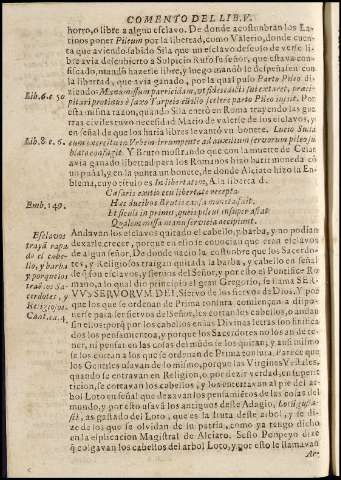 COMENTO DEL LIB. V.
horro, o libre a algun esclavo. De donde acostumbran los La-
tinos poner Pileum por la libertad, como Valerio, donde cuen-
ta que aviendo sabido Sila que un esclavo deseoso de verse li-
bre avia descubierto a Sulpicio Rufo su señor, que estava con-
fiscado, mandó hazerle libre, y luego mandó le despeñasen con
la libertad, que avia ganado, por la qual
Lib. 6. c. 50
diziendo: Manumissum parricidam, ut
pitari protinus è saxo Tarpeio cum scelere parto Pileo iussit. Por
esta misma razon, quando Sila entró en Roma trayendo las gue-
rras civiles tuvo necessidad Mario de valerse de los esclavos, y
en señal de que los haria libres levantó un bonete.
Lib. 8. c. 6.
cum exercitu in Urbem irrumpente ad auxilium servorum pileo
Y Bruto mostrando que con la muerte de Cesar
avia ganado libertad para los Romanos hizo batir moneda cõ
un puñal, y en la punta un bonete, de donde Alciato hizo la En-
blema, cuyo titulo es In libertatem, A la libertad.
Cæsaris exitio ceu libertate recepta
Emb. 149.
Hæc ducibus Brutis cusa moneta fuit.
Et siculi in primo, queis pileus insuper astat
Qualem missa manu servitia accipiunt.
Esclavos
traya rapa
do el cabe-
llo, y barba
y porque los
traen os Sa-
cerdotes, y
Religiosos.
Andavan los esclavos quitado el cabello, y barba, y no podian
dexarle crecer, porque en esto se conocian que eran esclavos
de algun señor. De donde nacio la costumbre que los Sacerdo-
tes, y Religiosos traigan quitada la barba, y cabello en señal
de q̃ son esclavos, y siervos del Señor, y por esto el Pontifice Ro-
mano, a lo qual dio principio el gran Gregorio, se llama SER-
VVS SERVORVM DEI, Siervo de los siervos de Dios. Y por
que los que se ordenan de Prima tonsura comiençan a dispo-
nerse para ser siervos del Señor, les cortan los cabellos, o andan
sin ellos: porq̃ por los cabellos en las Divinas letras son sinifica
dos los pensamientos, y porque los Sacerdotes no los an de te-
ner, ni pensar en las cosas del mundo se los quitan, y ansi mismo
se los cortan a los que se ordenan de Prima tonsura. Parece que
los Gentiles usavan de lo mismo, porque las Virgines Vestales,
quando se entravan en Religion, o por dezir verdad, en supersti-
cion, se cortavan los cabellos, y los enterravan al pie del ar-
bol Loto en señal que dexavan los pensamientos de las cosas del
mundo, y por esto usava los antiguos deste Adagio,
as gustado del Loto, que es la fruta deste arbol, y se di-
ze de los que se olvidan de su patria, como ya tengo dicho
en la esplicacion Magistral de Alciato. Sesto Pompeyo dize
q̃ colgavan los cabellos del arbol Loto, y por esto le llamavan
Ar-